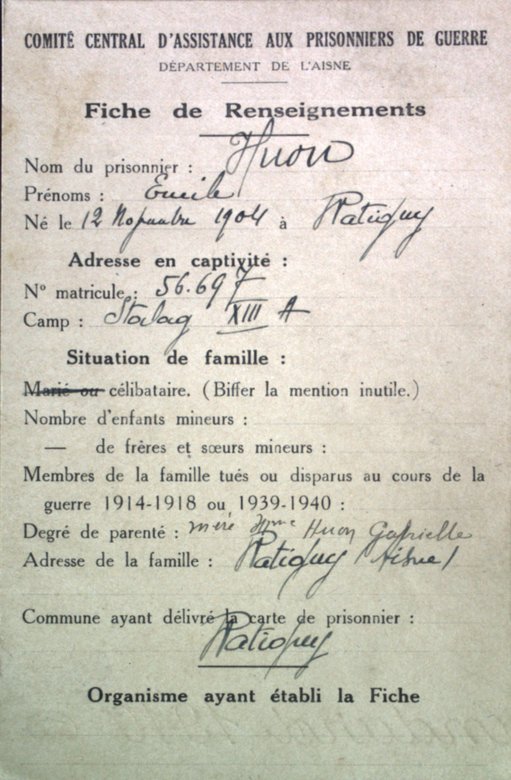 COMITÉ CENTRAL D'ASSISTANCE AUX PRISONNIERS DE GUERRE
DÉPARTEMENT DE L'AISNE
Fiche de Renseignements
Nom du prisonnier : Huon
Prénoms : Emile
Né le 12 Novembre 1904 à Ratigny
Adresse en captivité :
N° matricule : 56.697
Camp : Stalag XIII A
Situation de famille :
Marié ou célibataire. (Biffer la mention inutile.)
Nombre d'enfants mineurs :
— de frères et sœurs mineurs :
Membres de la famille tués ou disparus au cours de la
guerre 1914-1918 ou 1939-1940 :
Degré de parenté : mère Mme Huon Gabrielle
Adresse de la famille : Ratigny (Aisne)
Commune ayant délivré la carte de prisonnier :
Ratigny
Organisme ayant établi la Fiche